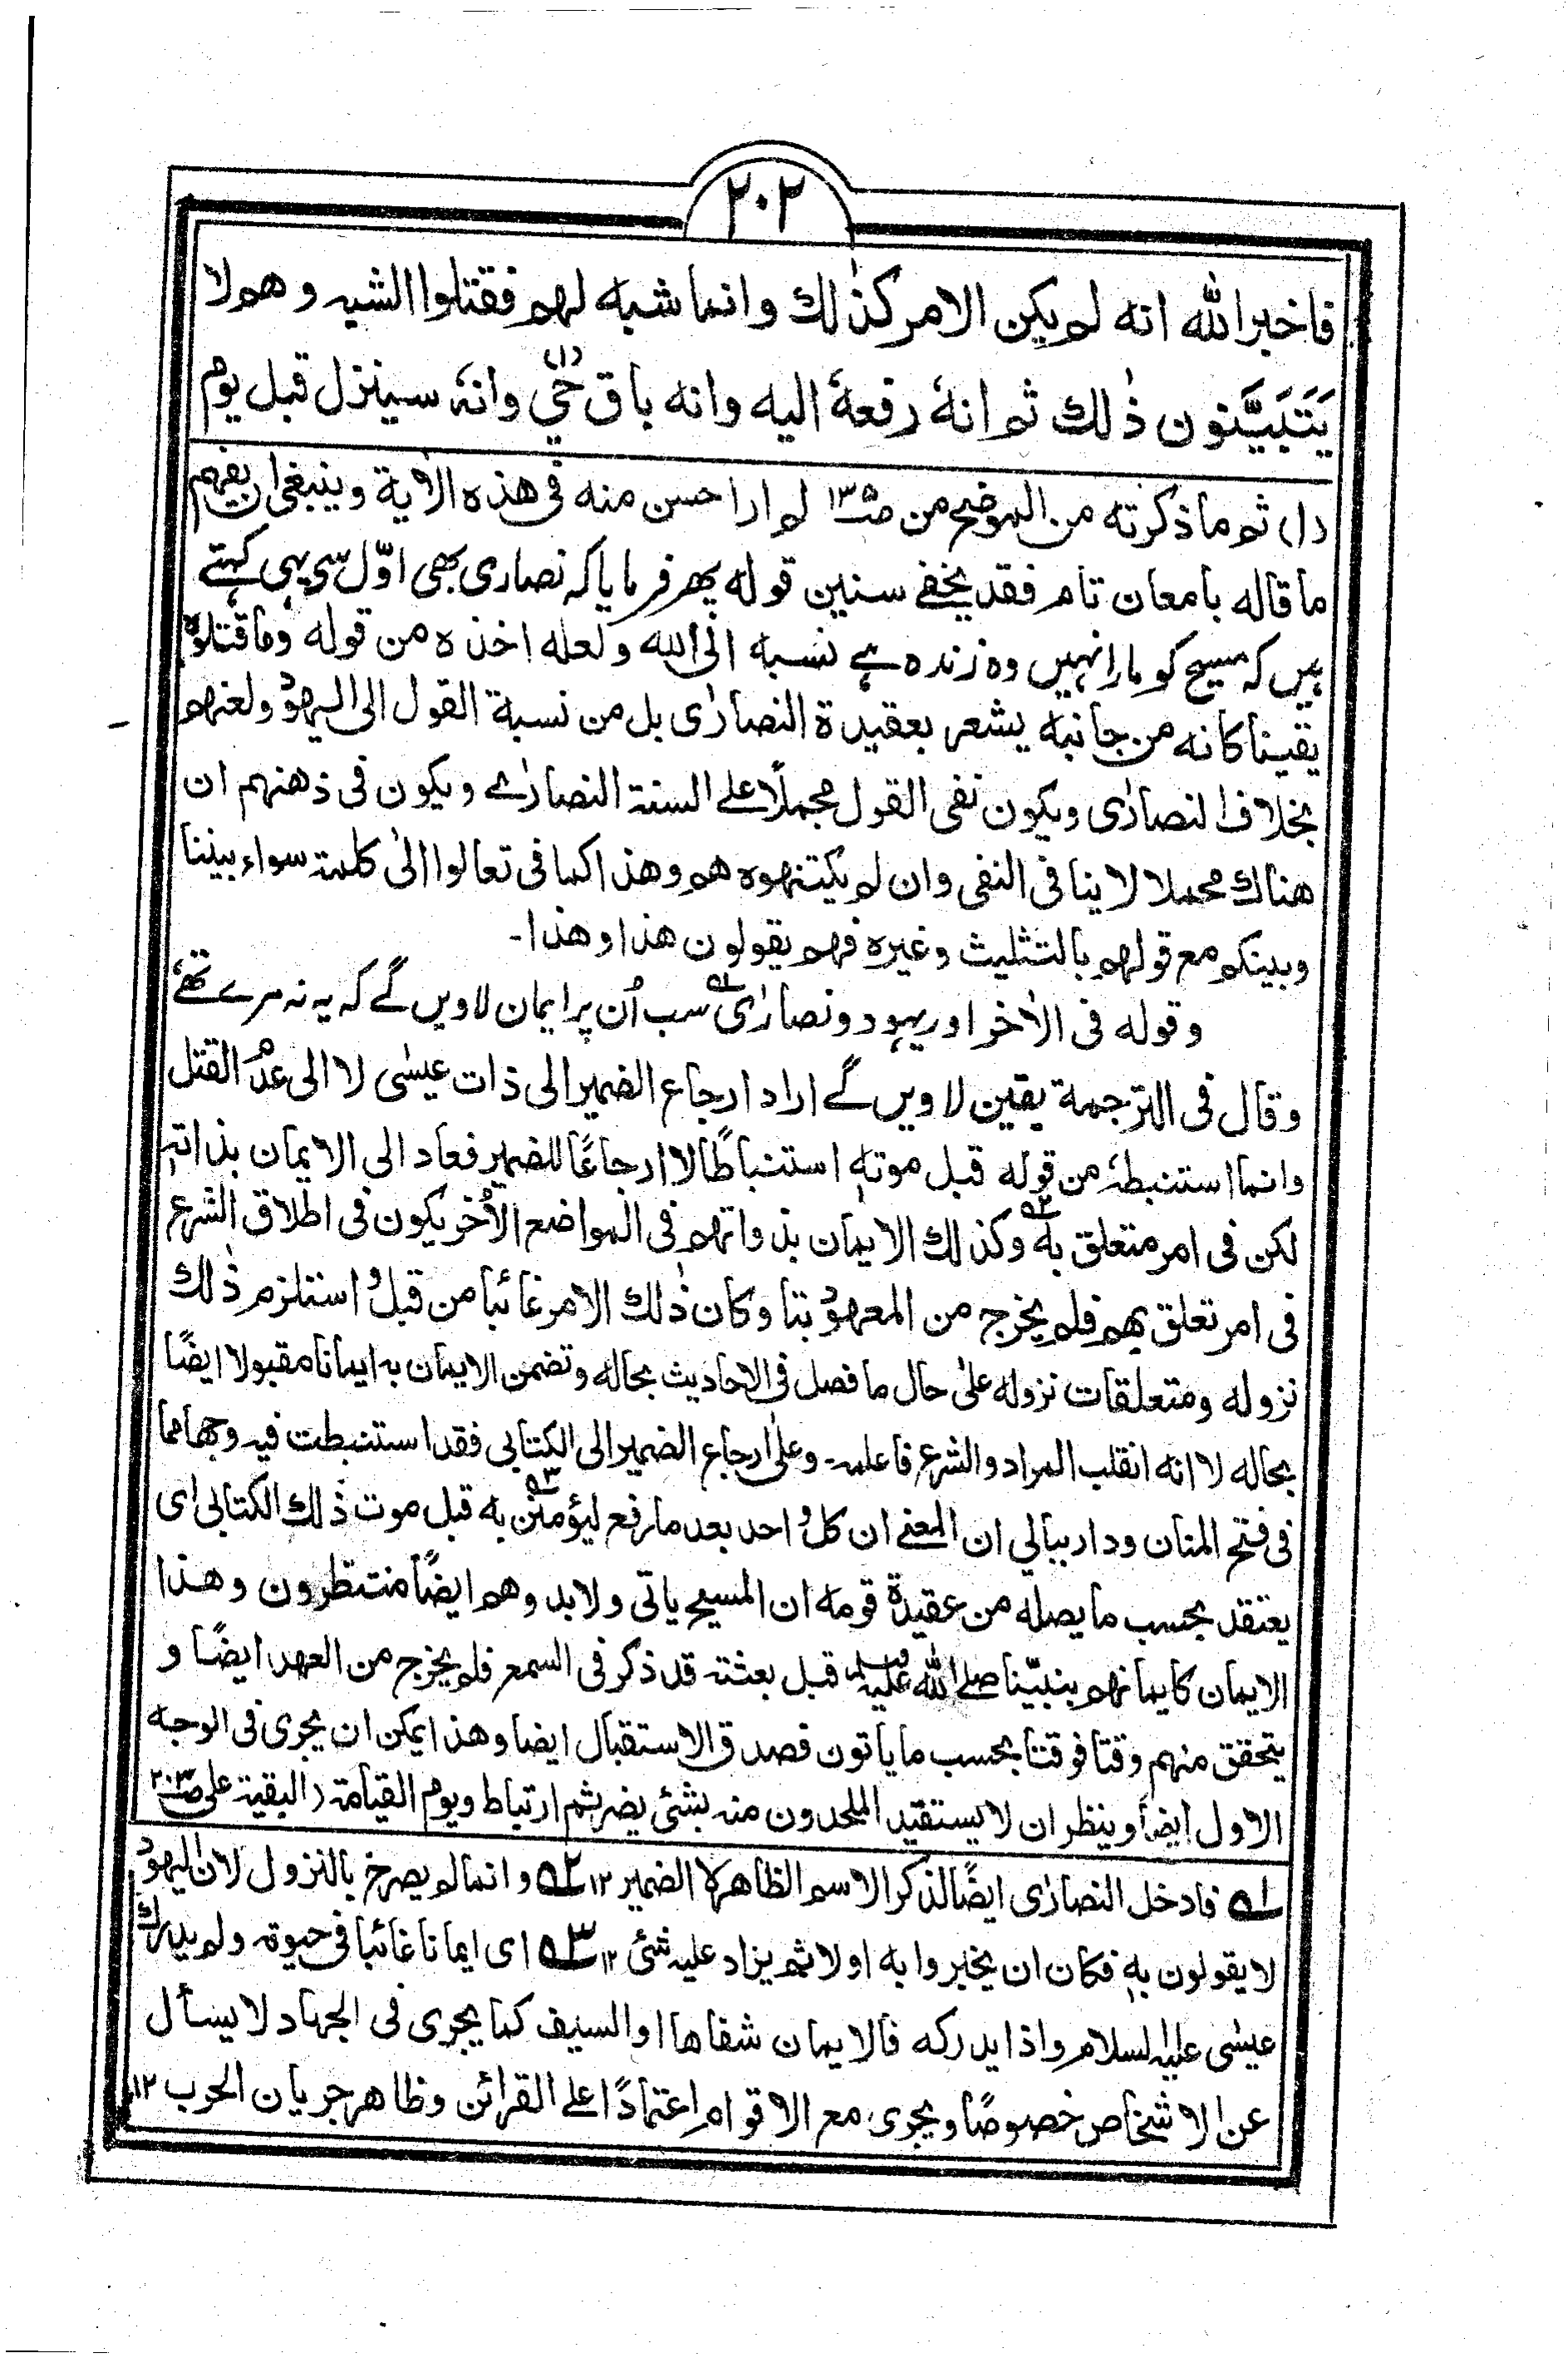 ٢٠٢
فاخبر الله انه لم يكن الامر كذٰلك وانما شبه لهم فقتلوا الشبه وهم لا
يَتَبَيَّنون ذٰلك ثم انهٗ رفعهٗ اليه وانه باق حيّ (١) وانهٗ سينزل قبل يوم
(١) ثم ما ذكرته من الموضح من ص١٣٥ لم ار احسن منه فى هذه الآية وينبغى ان يفهم
ما قاله بامعان تام فقد يخفے سنين قوله پھر فرمایا کہ نصاری بھی اوّل سے یہی کہتے
ہیں کہ مسیح کو مارا نہیں وہ زندہ ہے نسبه الى الله ولعله اخذه من قوله وما قتلوه
يقينا كانه من جانبه يشعر بعقيدة النصارٰى بل من نسبة القول الى اليهود ولعنهم
بخلاف النصارٰى ويكون نفى القول مجملًا على السنة النصارٰے ويكون فى ذهنهم ان
هناك محملا لا ينافى النفى وان لم يكتنهوه هم وهذا كما فى تعالوا الىٰ كلمة سواء بيننا
وبينكم مع قولهم بالتثليث وغيره فهم يقولون هذا وهذا۔
وقوله فى الاٰخر اور یہود و نصارٰی ؎۱ سب اُن پر ایمان لاویں گے کہ یہ نہ مرے تھے
وقال فى الترجمة یقین لاویں گے اراد ارجاع الضمير الى ذات عيسٰى لا الى عدم القتل
وانما استنبطهٗ من قوله قبل موته استنباطًا لا ارجاعًا للضمير فعاد الى الايمان بذاته
لكن فى امر متعلق به ؎۲ وكذلك الايمان بذواتهم فى المواضع الاُخر يكون فى اطلاق الشرع
فى امر تعلق بهم فلم يخرج من المعهود بتا وكان ذٰلك الامر غائبا من قبل واستلزم ذٰلك
نزوله ومتعلقات نزوله علىٰ حال ما فصل فى الاحاديث بحاله وتضمن الايمان به ايمانا مقبولا ايضًا
بحاله لا انه انقلب المراد والشرع فاعلمه۔ وعلى ارجاع الضمير الى الكتابى فقد استنبطت فيه وجها مما
فى فتح المنان ودار ببالي ان المعنے ان كل احد بعد ما رفع ليؤمنن ؎۳ به قبل موت ذٰلك الكتابى اى
يعتقد بحسب ما يصله من عقيدة قومه ان المسيح ياتى ولا بد وهم ايضًا منتظرون وهذا
الايمان كايمانهم بنبيّنا صلے الله عليه وسلم قبل بعثته قد ذكر فى السمع فلم يخرج من العهد ايضًا و
يتحقق منهم وقتا فوقتا بحسب ما ياتون فصدق الاستقبال ايضا وهذا يمكن ان يجرى فى الوجه
الاول ايضاً وينظر ان لا يستفيد الملحدون منه بشئ يضر ثم ارتباط ويوم القيامة (البقية على ص٢٠٣
؎۱ فادخل النصارٰى ايضًا لذكر الاسم الظاهر لا الضمير ١٢ ؎۲ وانما لم يصرح بالنزول لان اليهود
لا يقولون به فكان ان يخبروا به اولا ثم يزاد عليه شئ ١٢ ؎۳ اى ايمانا غائبا فى حيوته ولم يدرك
عيسٰى عليه السلام واذا يدركه فالايمان شفاها او السيف كما يجرى فى الجهاد لا يسأل
عن الاشخاص خصوصًا ويجرى مع الاقوام اعتمادًا على القرائن وظاهر جريان الحرب ١٢